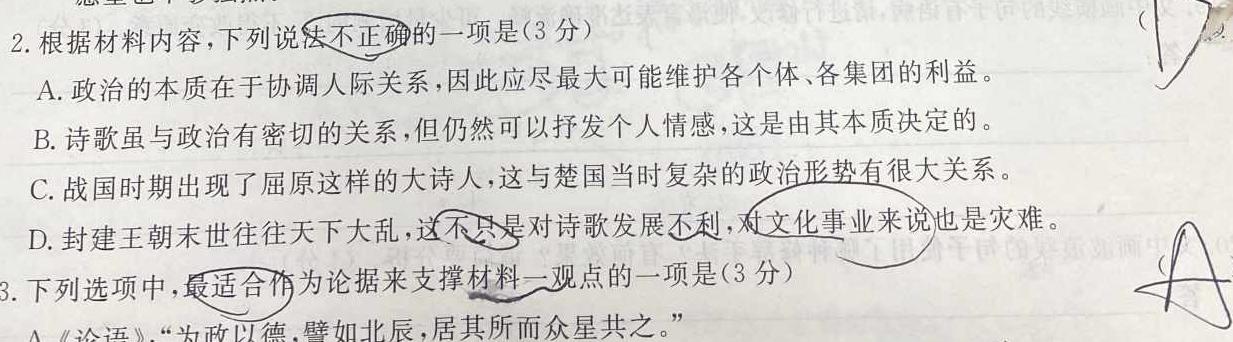 2. 根据材料内容,下列说法不正确的一项是(3分)
A. 政治的本质在于协调人际关系,因此应尽最大可能维护各个体、各集团的利益。
B. 诗歌虽与政治有密切的关系,但仍然可以抒发个人情感,这是由其本质决定的。
C. 战国时期出现了屈原这样的大诗人,这与楚国当时复杂的政治形势有很大关系。
D. 封建王朝末世往往天下大乱,这不只是对诗歌发展不利,对文化事业来说也是灾难。
A
3. 下列选项中,最适合作为论据来支撑材料一观点的一项是(3分)
A.《论语》:“为政以德,譬如北辰,居其所而众星共之。”